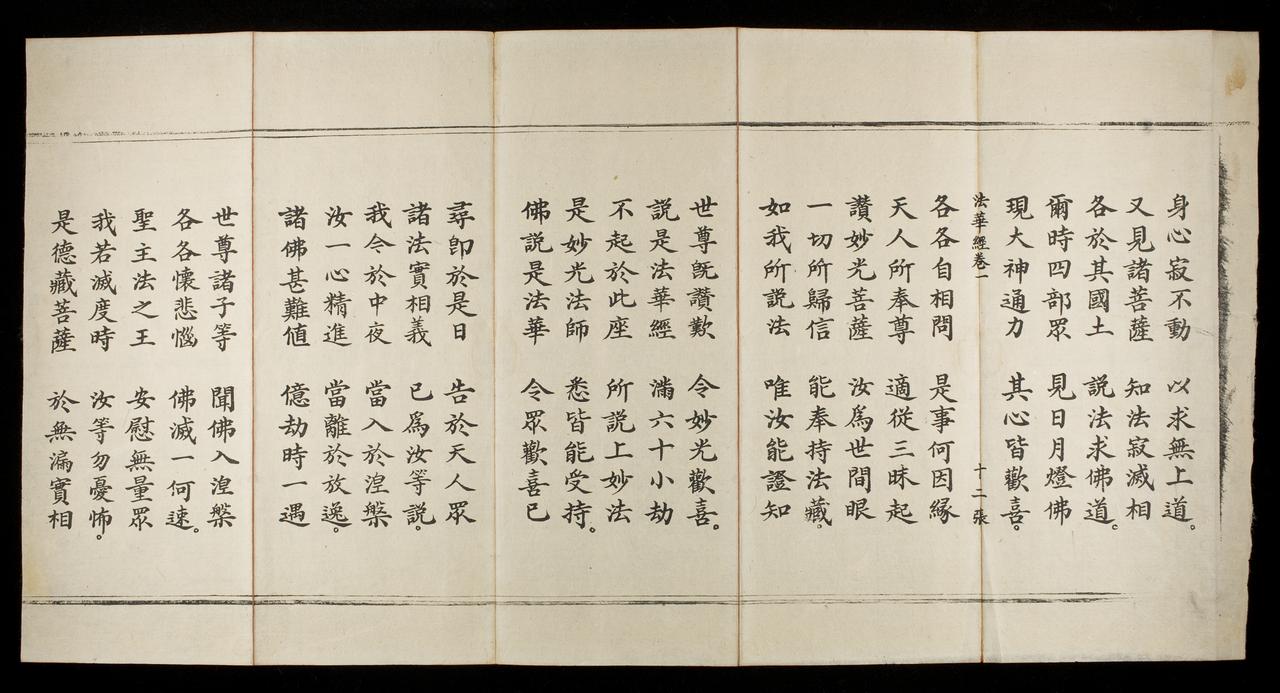 身心寂不動 以求無上道。
又見諸菩薩 知法寂滅相
各於其國土 說法求佛道。
爾時四部眾 見日月燈佛
現大神通力 其心皆歡喜。
法華經卷一 十二張
各各自相問 是事何因緣
天人所奉尊 適從三昧起
讚妙光菩薩 汝爲世間眼
一切所歸信 能奉持法藏。
如我所説法 唯汝能證知
世尊既讚歎 令妙光歡喜。
説是法華經 滿六十小劫
不起於此座 所説上妙法
是妙光法師 悉皆能受持。
佛説是法華 令眾歡喜已
尋卽於是日 告於天人眾
諸法實相義 已爲汝等説。
我今於中夜 當入於涅槃
汝一心精進 當離於放逸。
諸佛甚難値 億劫時一遇
世尊諸子等 聞佛入涅槃
各各懷悲惱 佛滅一何速。
聖主法之王 安慰無量眾
我若滅度時 汝等勿憂怖。
是德藏菩薩 於無漏實相